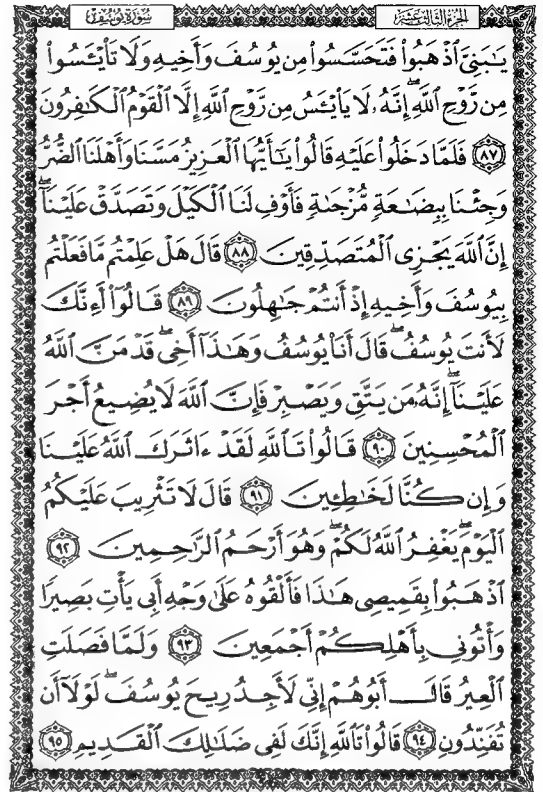 سُورَةُ يُوسُفَ الجزء الثالث عشر
يَـٰبَنِىَّ ٱذْهَبُوا۟ فَتَحَسَّسُوا۟ مِن يُوسُفَ وَأَخِيهِ وَلَا تَا۟يْـَٔسُوا۟
مِن رَّوْحِ ٱللَّهِ ۖ إِنَّهُۥ لَا يَا۟يْـَٔسُ مِن رَّوْحِ ٱللَّهِ إِلَّا ٱلْقَوْمُ ٱلْكَـٰفِرُونَ
﴿٨٧﴾ فَلَمَّا دَخَلُوا۟ عَلَيْهِ قَالُوا۟ يَـٰٓأَيُّهَا ٱلْعَزِيزُ مَسَّنَا وَأَهْلَنَا ٱلضُّرُّ
وَجِئْنَا بِبِضَـٰعَةٍ مُّزْجَىٰةٍ فَأَوْفِ لَنَا ٱلْكَيْلَ وَتَصَدَّقْ عَلَيْنَآ ۖ
إِنَّ ٱللَّهَ يَجْزِى ٱلْمُتَصَدِّقِينَ ﴿٨٨﴾ قَالَ هَلْ عَلِمْتُم مَّا فَعَلْتُم
بِيُوسُفَ وَأَخِيهِ إِذْ أَنتُمْ جَـٰهِلُونَ ﴿٨٩﴾ قَالُوٓا۟ أَءِنَّكَ
لَأَنتَ يُوسُفُ ۖ قَالَ أَنَا۠ يُوسُفُ وَهَـٰذَآ أَخِى ۖ قَدْ مَنَّ ٱللَّهُ
عَلَيْنَآ ۖ إِنَّهُۥ مَن يَتَّقِ وَيَصْبِرْ فَإِنَّ ٱللَّهَ لَا يُضِيعُ أَجْرَ
ٱلْمُحْسِنِينَ ﴿٩٠﴾ قَالُوا۟ تَٱللَّهِ لَقَدْ ءَاثَرَكَ ٱللَّهُ عَلَيْنَا
وَإِن كُنَّا لَخَـٰطِـِٔينَ ﴿٩١﴾ قَالَ لَا تَثْرِيبَ عَلَيْكُمُ
ٱلْيَوْمَ ۖ يَغْفِرُ ٱللَّهُ لَكُمْ ۖ وَهُوَ أَرْحَمُ ٱلرَّٰحِمِينَ ﴿٩٢﴾
ٱذْهَبُوا۟ بِقَمِيصِى هَـٰذَا فَأَلْقُوهُ عَلَىٰ وَجْهِ أَبِى يَأْتِ بَصِيرًا
وَأْتُونِى بِأَهْلِكُمْ أَجْمَعِينَ ﴿٩٣﴾ وَلَمَّا فَصَلَتِ
ٱلْعِيرُ قَالَ أَبُوهُمْ إِنِّى لَأَجِدُ رِيحَ يُوسُفَ ۖ لَوْلَآ أَن
تُفَنِّدُونِ ﴿٩٤﴾ قَالُوا۟ تَٱللَّهِ إِنَّكَ لَفِى ضَلَـٰلِكَ ٱلْقَدِيمِ ﴿٩٥﴾